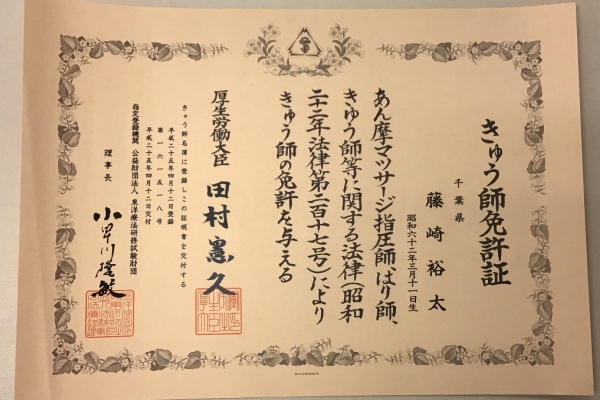 きゅう師免許証
千葉県
藤崎裕太
昭和六十二年三月十一日生
あん摩マツサージ指圧師、はり師、
きゅう師等に関する法律（昭和
二十二年法律第二百十七号）により
きゅう師の免許を与える
厚生労働大臣 田村憲久
きゅう師名簿に登録しこの証明書を交付する
平成二十五年四月十二日登録
第一六一五一八号
平成二十五年四月十二日交付
指定登録機関 公益財団法人 東洋療法研修試験財団
理事長 小早川隆敏